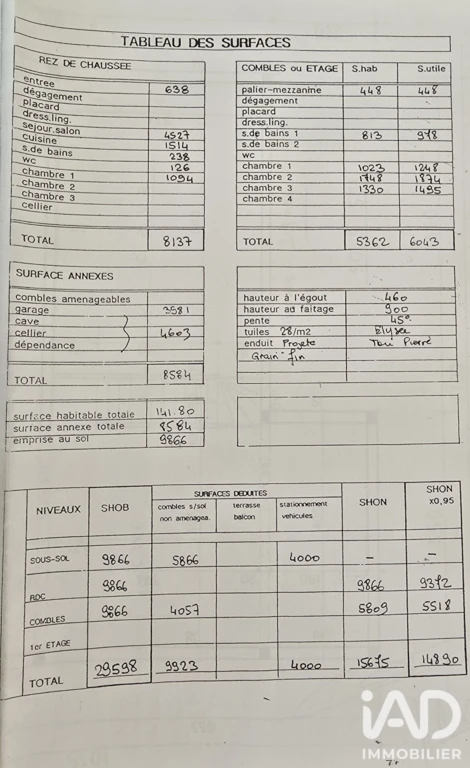 TABLEAU DES SURFACES
REZ DE CHAUSSEE
entree 638
dégagement
placard
dress.ling.
sejour.salon 4527
cuisine 1514
s.de bains 238
wc 126
chambre 1 1094
chambre 2
chambre 3
cellier
TOTAL 8137
COMBLES ou ETAGE S.hab S.utile
palier-mezzanine 448 448
dégagement
placard
dress.ling.
s.de bains 1 813 978
s.de bains 2
wc
chambre 1 1023 1248
chambre 2 1748 1874
chambre 3 1330 1495
chambre 4
TOTAL 5362 6043
SURFACE ANNEXES
combles amenageables
garage 3981
cave
cellier 4603
dépendance
TOTAL 8584
hauteur à l'égout 460
hauteur au faitage 900
pente 45°
tuiles 28/m2 Elysee
enduit Projeté Ton Pierre
Grain-fin
surface habitable totale 141.80
surface annexe totale 8584
emprise au sol 9866
NIVEAUX SHOB SURFACES DEDUITES SHON SHON x0,95
combles s/sol non amenagea. terrasse balcon stationnement vehicules
SOUS-SOL 9866 5866 4000 - -
RDC 9866 9866 9372
COMBLES 9866 4057 5809 5518
1er ETAGE
TOTAL 29598 9923 4000 15675 14890
iAD
IMMOBILIER